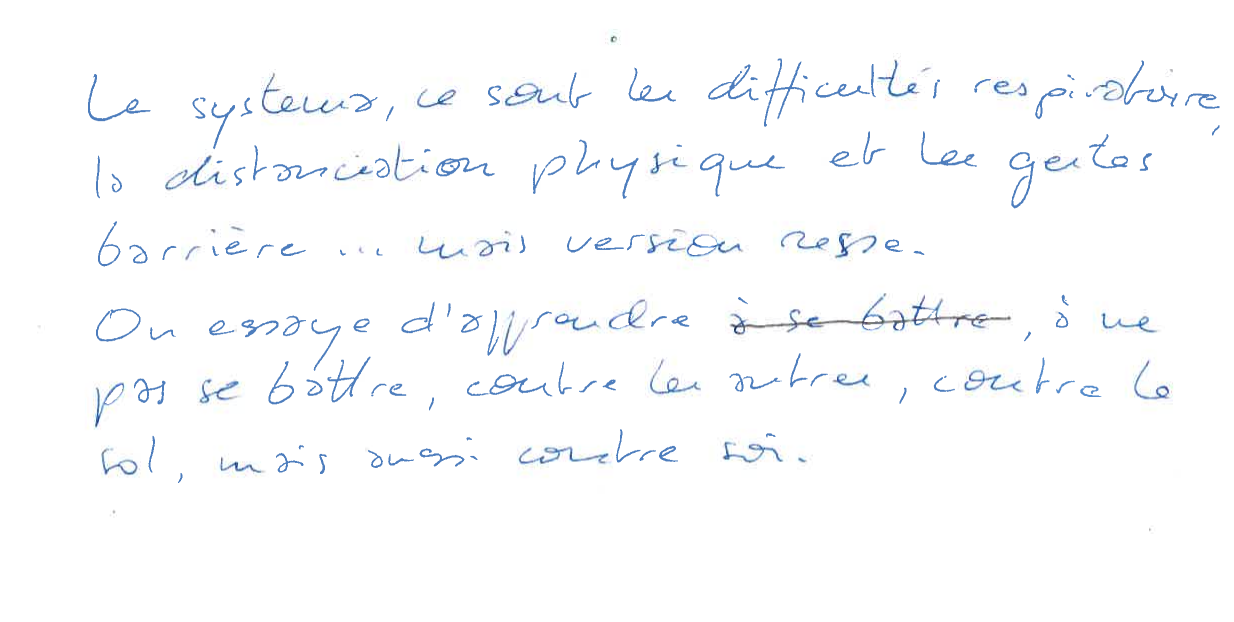 Le systema, ce sont les difficultés respiratoire,
la distanciation physique et les gestes
barrière ... mais version russe.
On essaye d'apprendre à se battre, à ne
pas se battre, contre les autres, contre le
sol, mais aussi contre soi.